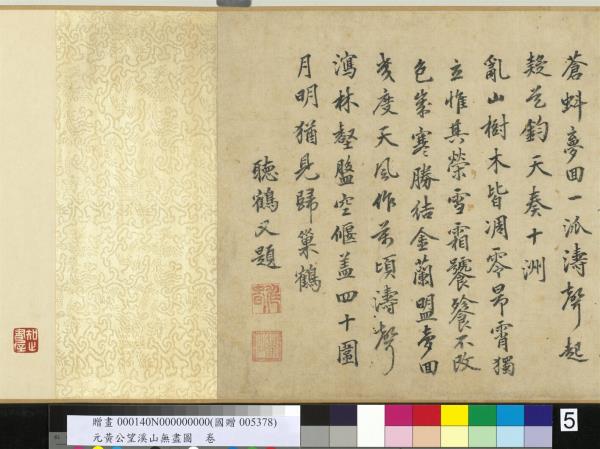 蒼蚪夢回一派濤聲起
疑是鈞天奏十洲
亂山樹木皆凋零昂霄獨
立惟其榮雪霜饕餮不改
色歲寒勝結金蘭盟夢回
幾度天風作萬頃濤聲
瀉林壑盤空偃蓋四十圍
月明猶見歸巢鶴
聽鶴又題
贈畫 000140N000000000(國贈 005378)
元黃公望溪山無盡圖 卷
5